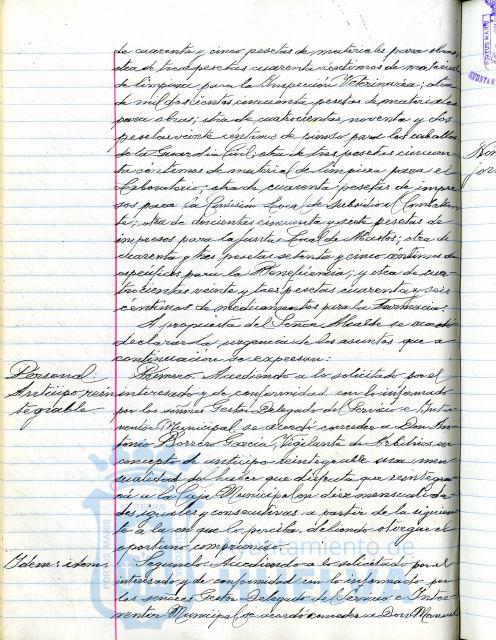 de cuarenta y cinco pesetas de materiales para obras;
otra de tres pesetas cuarenta centimos de material
de limpieza para la Inspección Veterinaria; otra
de mil doscientas cincuenta pesetas de materiales
para obras; otra de cuatrocientas noventa y dos
pesetas veinte centimos de pienso para los caballos
de la Guardia Civil; otra de tres pesetas cincuen-
ta centimos de material de limpieza para el
Laboratorio; otra de cuarenta pesetas de impre-
sos para la Comisión Local de Subsidio al Combatien-
te; otra de doscientas cincuenta y siete pesetas de
impresos para la Junta Local de Abastos; otra de
cuarenta y tres pesetas setenta y cinco centimos de
especificos para la Beneficencia; y otra de cua-
trocientas veinte y tres pesetas cuarenta y seis
centimos de medicamentos para la Farmacia.
A propuesta del Señor Alcalde se acordó
declarar la urgencia de los asuntos que a
continuación se expresan:
Personal
Anticipo rein
tegrable
Primero. Accediendo a lo solicitado por el
interesado y de conformidad con lo informado
por los señores Gestor Delegado del Servicio e Inter-
ventor Municipal se acordó conceder a Don An-
tonio Borrero García, Vigilante de Arbitrios, en
concepto de anticipo reintegrable una men-
sualidad del haber que disfruta que reintegra-
rá a la Caja Municipal en diez mensualida-
des iguales y consecutivas a partir de la siguien-
te a la en que lo perciba, debiendo otorgar el
oportuno compromiso.
Idem: idem.
Segundo. Accediendo a lo solicitado por el
interesado y de conformidad con lo informado por
los señores Gestor Delegado del Servicio e Inter-
ventor Municipal se acordó conceder a Don Manuel
Ayuntamiento de
PORTUS MARIS